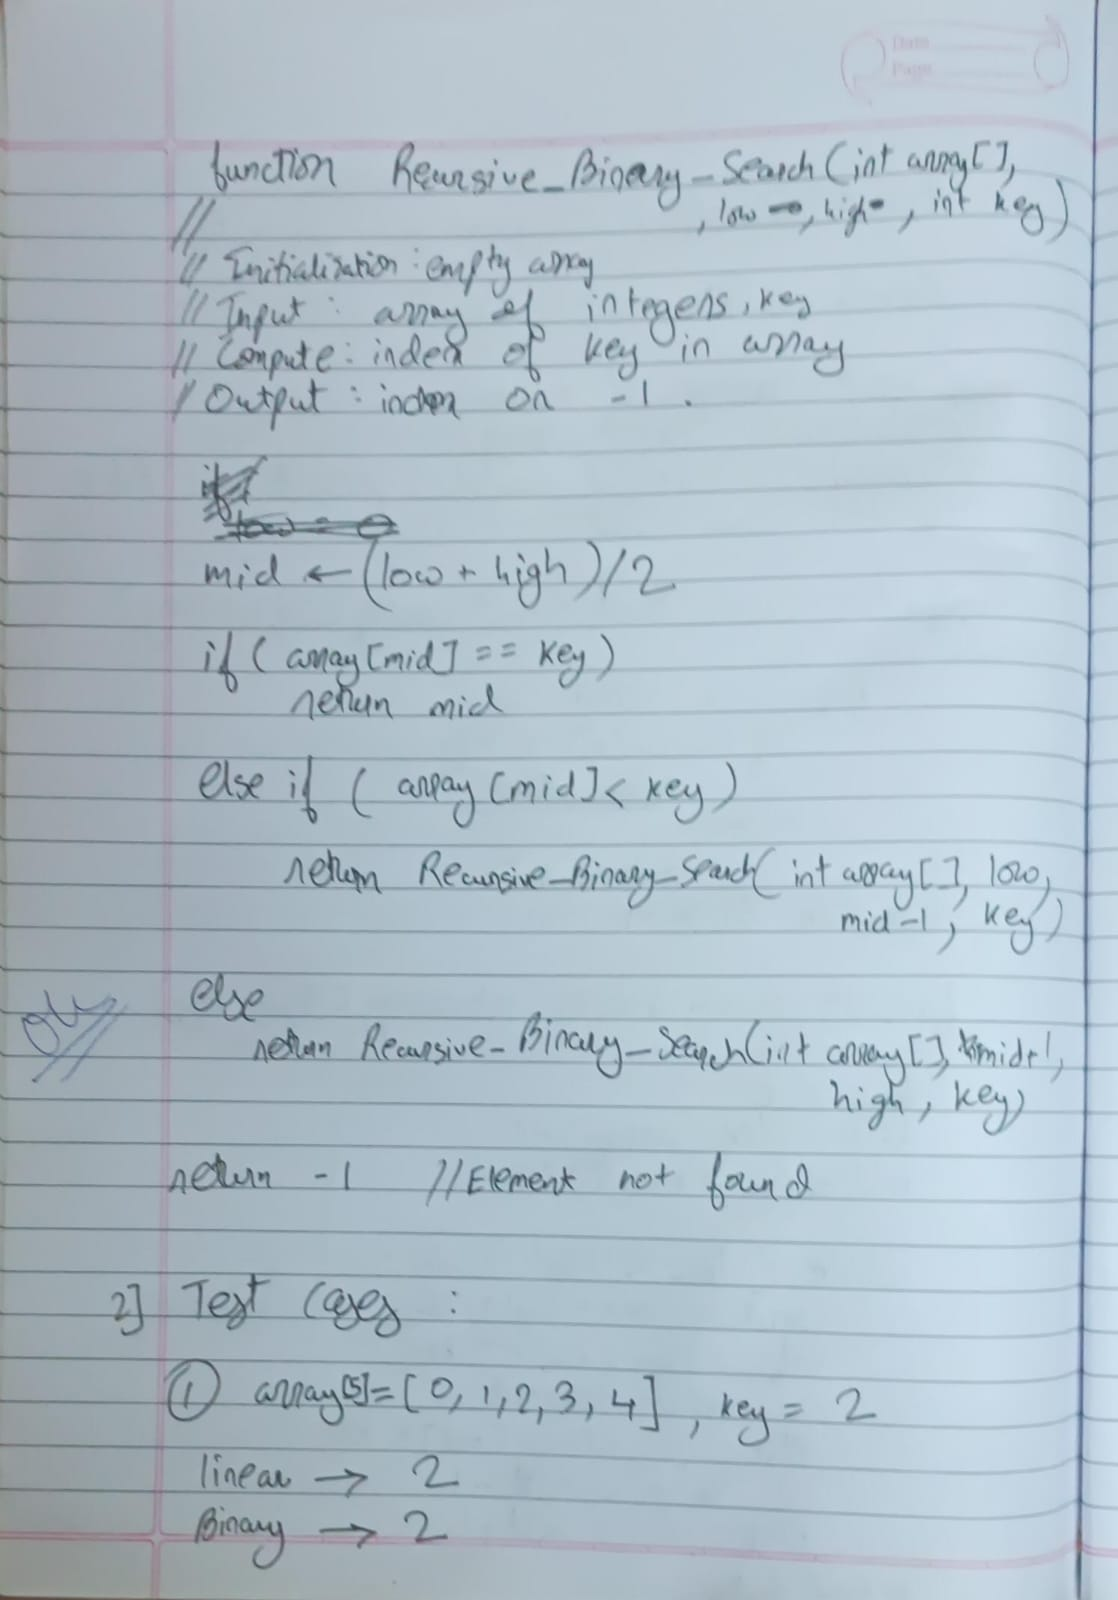 Date
Page
function Recursive_Binary_Search(int array[],
, low, high, int key)
//
// Initialization : empty array
// Input : array of integers, key
// Compute : index of key in array
/ Output : index or -1 .
mid ← (low + high)/2
if ( array[mid] == key)
return mid
else if ( array [mid] < key )
return Recursive_Binary_Search( int array[], low,
mid -1, key)
else
return Recursive_Binary_Search(int array[], mid+1,
high, key)
return -1 //Element not found
2] Test Cases :
① array[5]=[0, 1, 2, 3, 4] , key = 2
linear → 2
Binary → 2